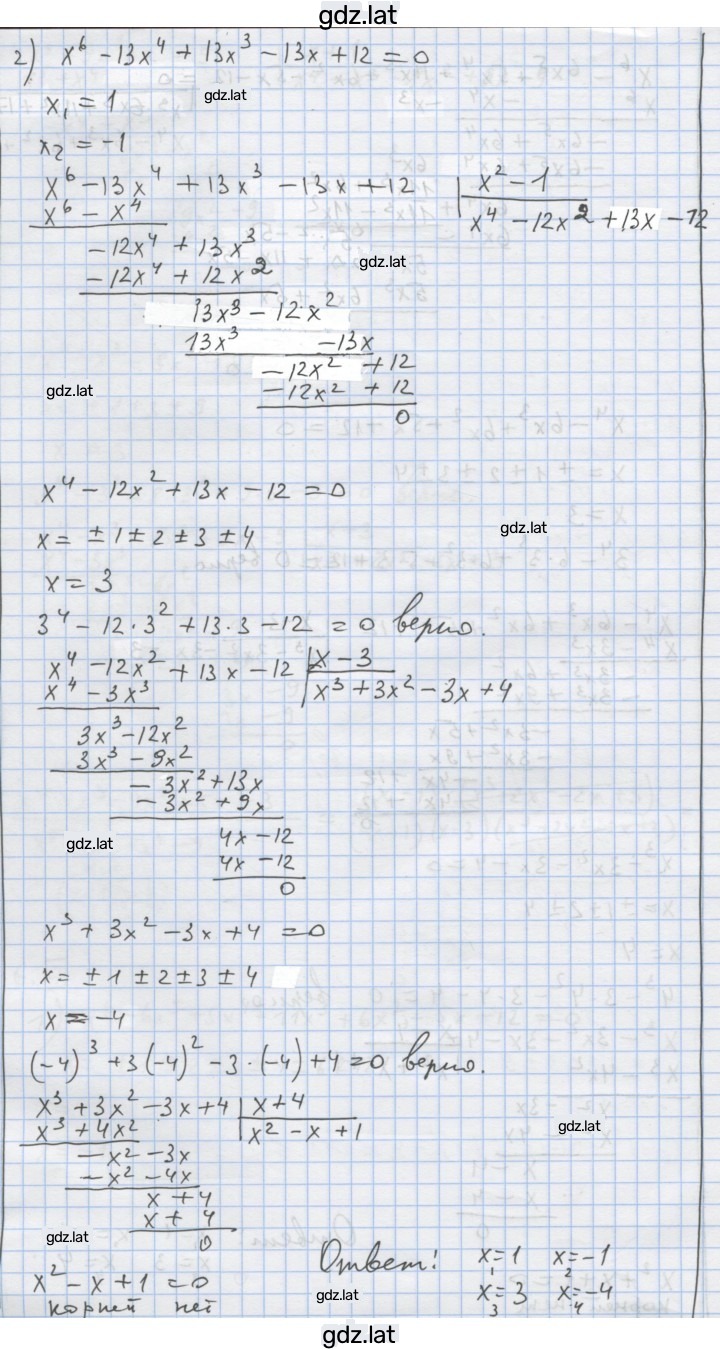 gdz.lat
2) x⁶ - 13x⁴ + 13x³ - 13x + 12 = 0
x₁ = 1
gdz.lat
x₂ = -1
x⁶ - 13x⁴ + 13x³ - 13x + 12 | x² - 1
x⁶ - x⁴ | x⁴ - 12x² + 13x - 12
-12x⁴ + 13x³
-12x⁴ + 12x²
gdz.lat
13x³ - 12x²
13x³ - 13x
-12x² + 12
-12x² + 12
gdz.lat
0
x⁴ - 12x² + 13x - 12 = 0
x = ± 1 ± 2 ± 3 ± 4
gdz.lat
x = 3
3⁴ - 12·3² + 13·3 - 12 = 0 верно.
x⁴ - 12x² + 13x - 12 | x - 3
x⁴ - 3x³ | x³ + 3x² - 3x + 4
3x³ - 12x²
3x³ - 9x²
- 3x² + 13x
- 3x² + 9x
gdz.lat
4x - 12
4x - 12
0
x³ + 3x² - 3x + 4 = 0
x = ± 1 ± 2 ± 3 ± 4
x = -4
(-4)³ + 3(-4)² - 3·(-4) + 4 = 0 верно.
x³ + 3x² - 3x + 4 | x + 4
x³ + 4x² | x² - x + 1
gdz.lat
- x² - 3x
- x² - 4x
x + 4
x + 4
gdz.lat
0
x² - x + 1 = 0
корней нет
Ответ: x₁ = 1 x₂ = -1
gdz.lat
x₃ = 3 x₄ = -4
gdz.lat